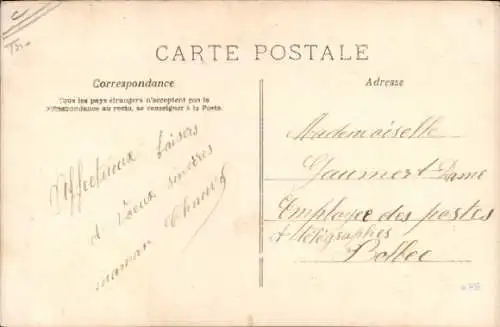 CARTE POSTALE
Correspondance
Tous les pays étrangers n'acceptent pas la
correspondance au recto, se renseigner à la Poste.
Affectueux baisers
et vœux sincères
maman
Adresse
Mademoiselle
Jeanne
Employée des postes
et télégraphes
Bolbec